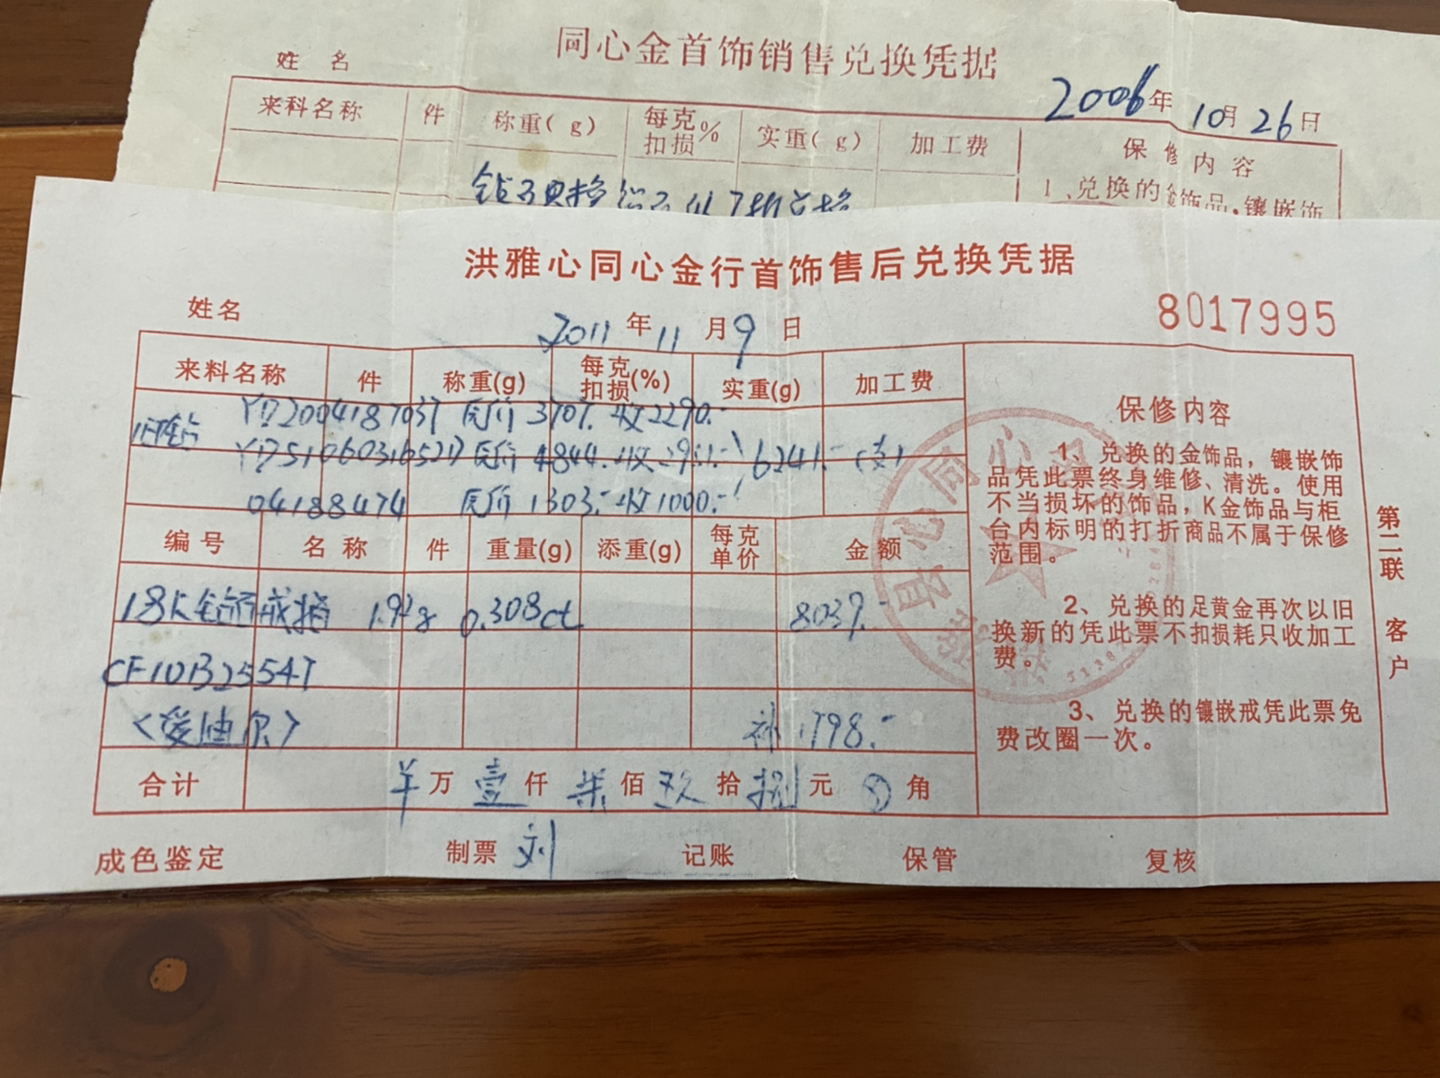 同心金首饰销售兑换凭据
姓 名
2006年 10月 26日
来料名称 件 称重(g) 每克扣损% 实重(g) 加工费 保修内容
1、兑换的金饰品，镶嵌饰
洪雅心同心金行首饰售后兑换凭据
8017995
姓名
2011 年 11 月 9 日
来料名称 件 称重(g) 每克扣损(%) 实重(g) 加工费
YD2004187037 原价 3707. 收2290.-
旧钻 原价 4844. 6241.-
04188474 原价 1303.- 收1000.-
编号 名称 件 重量(g) 添重(g) 每克单价 金额
18K 戒指 0.308ct 8039.-
CF101B32554T
<爱迪尔> 补 1798.-
合计 万 壹 仟 柒 佰 玖 拾 捌 元 角
成色鉴定 制票 刘 记账 保管 复核
保修内容
1、兑换的金饰品，镶嵌饰
品凭此票终身维修、清洗。使用
不当损坏的饰品，K金饰品与柜
台内标明的打折商品不属于保修
范围。
2、兑换的足黄金再次以旧
换新的凭此票不扣损耗只收加工
费。
3、兑换的镶嵌戒凭此票免
费改圈一次。
第二联 客户